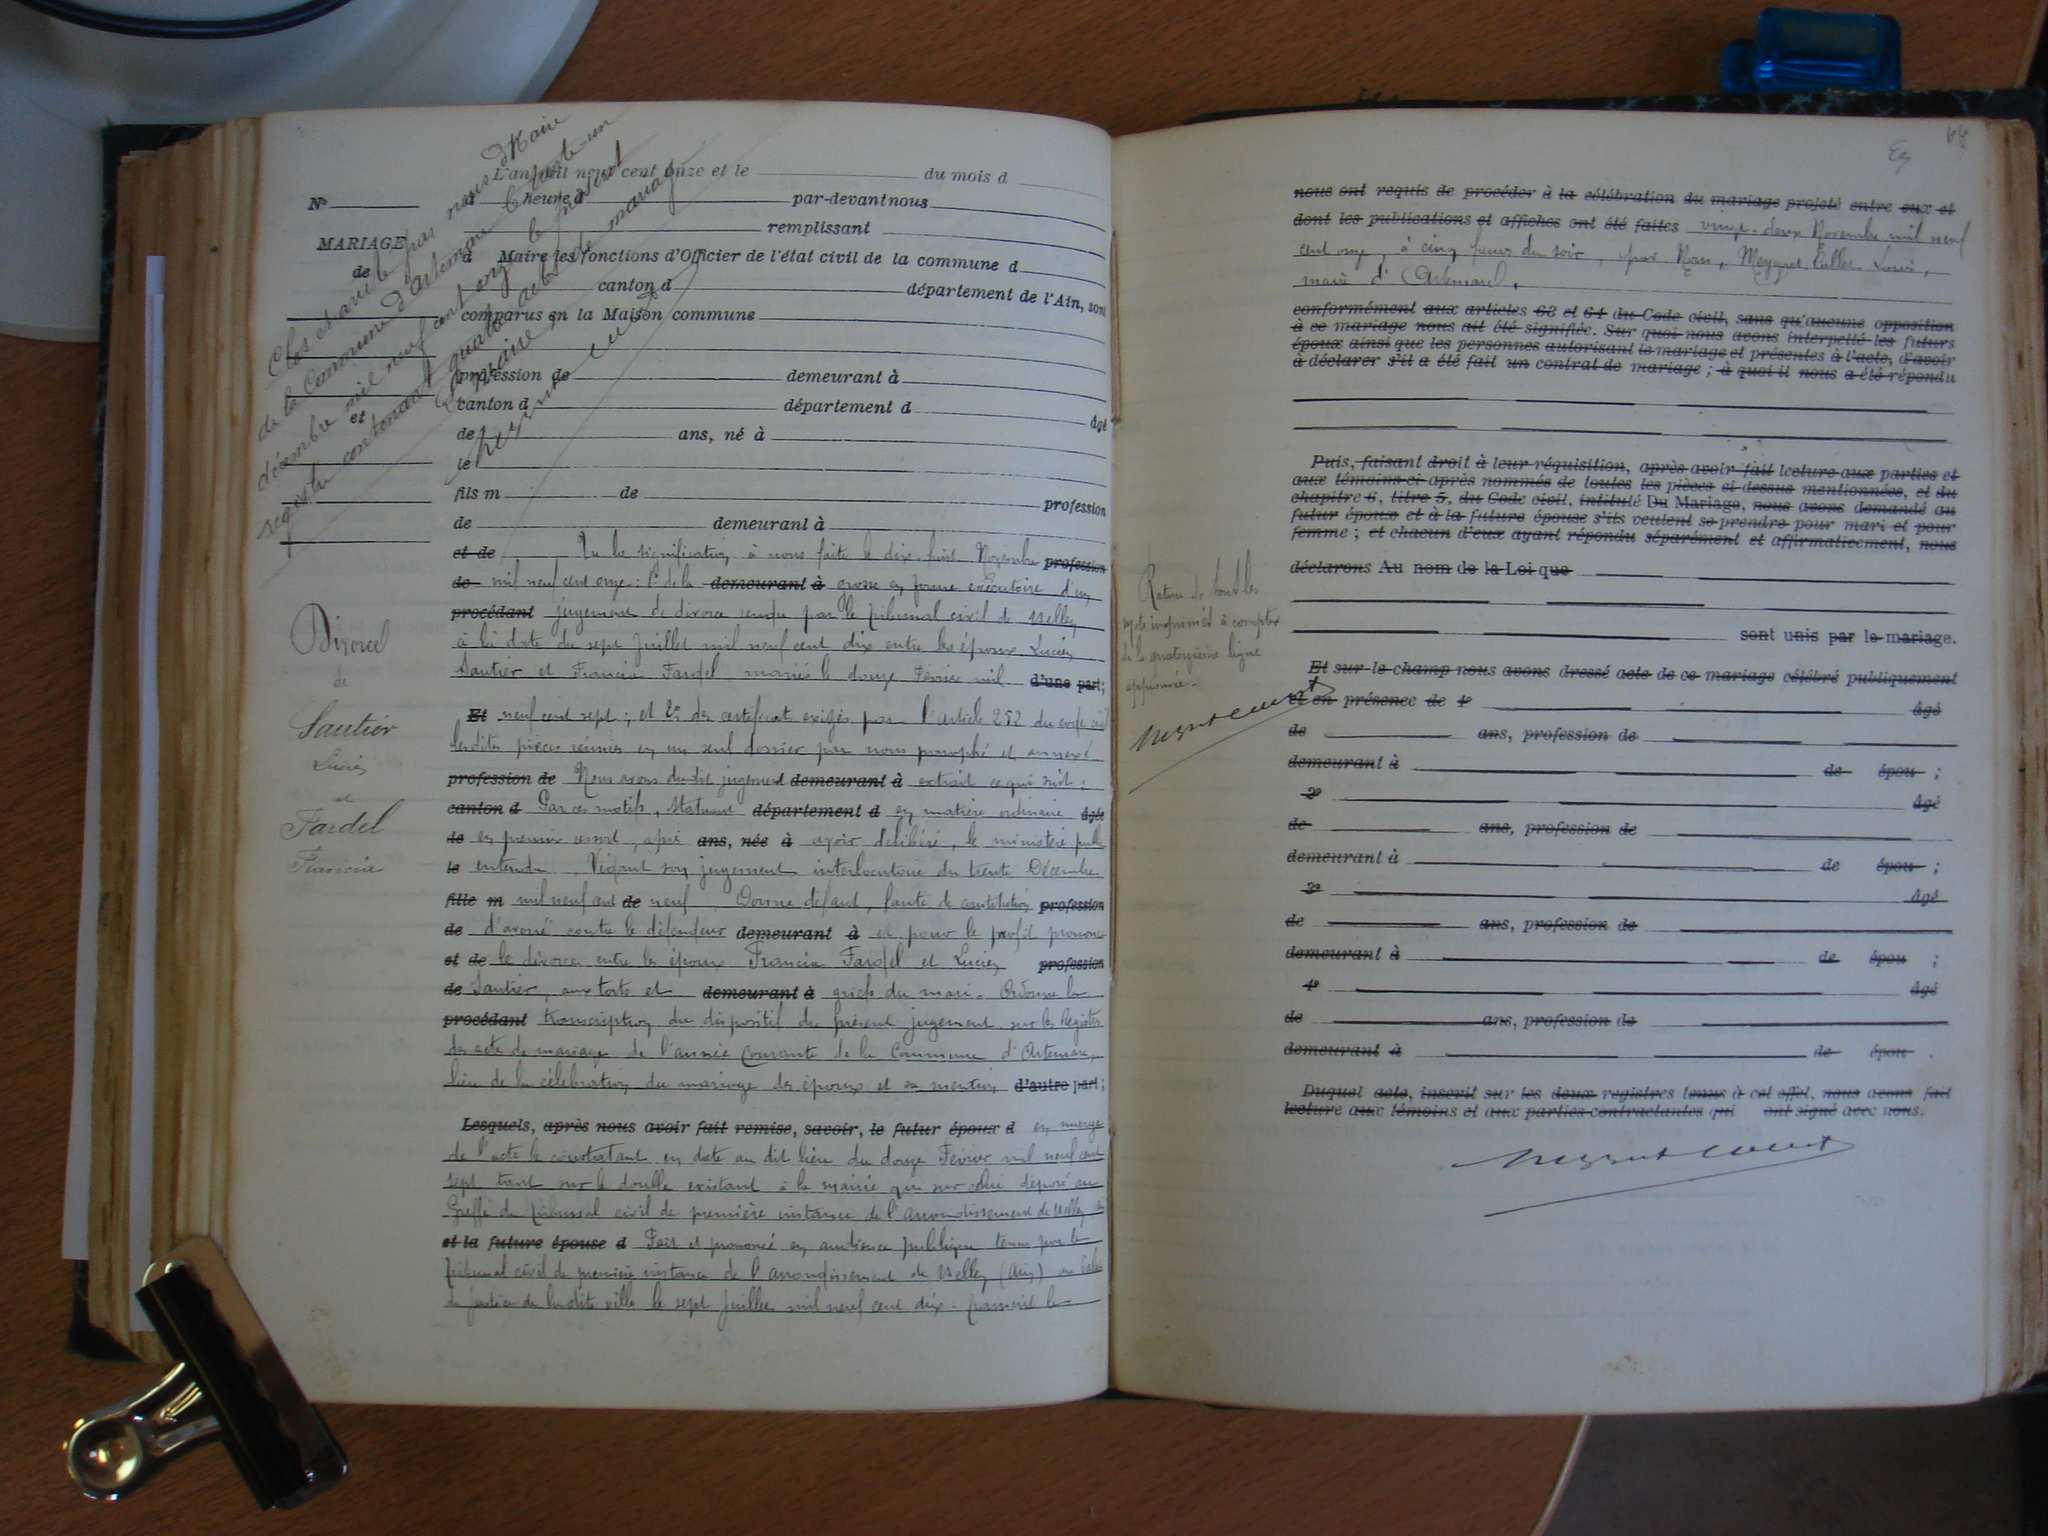 Clos et arrêté par nous Maire
de la Commune d'Artemare le trente-un
décembre mil neuf cent onze le présent
registre contenant quatre actes de mariage
Le Maire,
L'an mil neuf cent onze et le du mois d
heure d par-devant nous
remplissant
d Maire les fonctions d'Officier de l'état civil de la commune d
canton d département de l'Ain, sont
comparus en la Maison commune
profession de demeurant à
canton d département d âgé
de ans, né à
le
fils m de profession
de demeurant à
N°
MARIAGE
de
et
Divorce
de
Sautier
Lucien
et
Fardel
Francia
et de Vu la signification à nous faite le dix-huit Novembre profession
de mil neuf cent onze : 1° de la demeurant à grosse en forme exécutoire d'un
procédant jugement de divorce rendu par le tribunal civil de Belley
à la date du sept Juillet mil neuf cent dix entre les époux Lucien
Sautier et Francia Fardel mariés le douze Février mil d'une part;
Et neuf cent sept ; et 2° des certificats exigés par l'article 252 du code civil
lesdites pièces réunies en un seul dossier par nous paraphé et annexé
profession de Nous avons dudit jugement demeurant à extrait ce qui suit :
canton d Par ces motifs, statuant département d en matière ordinaire âgée
de en premier ressort, après ans, née à avoir délibéré, le ministère public
le entendu Vidant son jugement interlocutoire du trente Décembre
fille m mil neuf cent de neuf Donne défaut, faute de constitution profession
de d'avoué contre le défendeur demeurant à et pour le profit prononce
et de le divorce entre les époux Francia Fardel et Lucien profession
de Sautier, aux torts et demeurant à griefs du mari. Ordonne la
procédant transcription du dispositif du présent jugement sur les Registres
des actes de mariage de l'année courante de la Commune d'Artemare,
lieu de la célébration du mariage des époux et sa mention d'autre part;
Lesquels, après nous avoir fait remise, savoir, le futur époux d en marge
de l'acte le constatant en date au dit lieu du douze Février mil neuf cent
sept tant sur le double existant à la mairie que sur celui déposé au
Greffe du tribunal civil de première instance de l'arrondissement de Belley
et la future épouse d Fait et prononcé en audience publique tenue par le
tribunal civil de première instance de l'arrondissement de Belley (Ain) au Palais
de justice de ladite ville le sept juillet mil neuf cent dix - transcrit le
nous ont requis de procéder à la célébration du mariage projeté entre eux et
dont les publications et affiches ont été faites vingt-deux Novembre mil neuf
cent onze, à cinq heures du soir, par Nous, Louis,
maire d'Artemare.
conformément aux articles 63 et 64 du Code civil, sans qu'aucune opposition
à ce mariage nous ait été signifiée. Sur quoi nous avons interpellé les futurs
époux ainsi que les personnes autorisant le mariage et présentes à l'acte, d'avoir
à déclarer s'il a été fait un contrat de mariage ; à quoi il nous a été répondu
Puis, faisant droit à leur réquisition, après avoir fait lecture aux parties et
aux témoins ci-après nommés de toutes les pièces ci-dessus mentionnées, et du
chapitre 6, titre 5, du Code civil, intitulé Du Mariage, nous avons demandé au
futur époux et à la future épouse s'ils veulent se prendre pour mari et pour
femme ; et chacun d'eux ayant répondu séparément et affirmativement, nous
déclarons Au nom de la Loi que
sont unis par le mariage.
Et sur-le-champ nous avons dressé acte de ce mariage célébré publiquement
et en présence de 1° âgé
de ans, profession de
demeurant à de épou ;
2° âgé
de ans, profession de
demeurant à de épou ;
3° âgé
de ans, profession de
demeurant à de épou ;
4° âgé
de ans, profession de
demeurant à de épou .
Duquel acte, inscrit sur les deux registres tenus à cet effet, nous avons fait
lecture aux témoins et aux parties contractantes qui ont signé avec nous.
Rature de tous les
mots imprimés à compter
de la quatorzième ligne
approuvée.